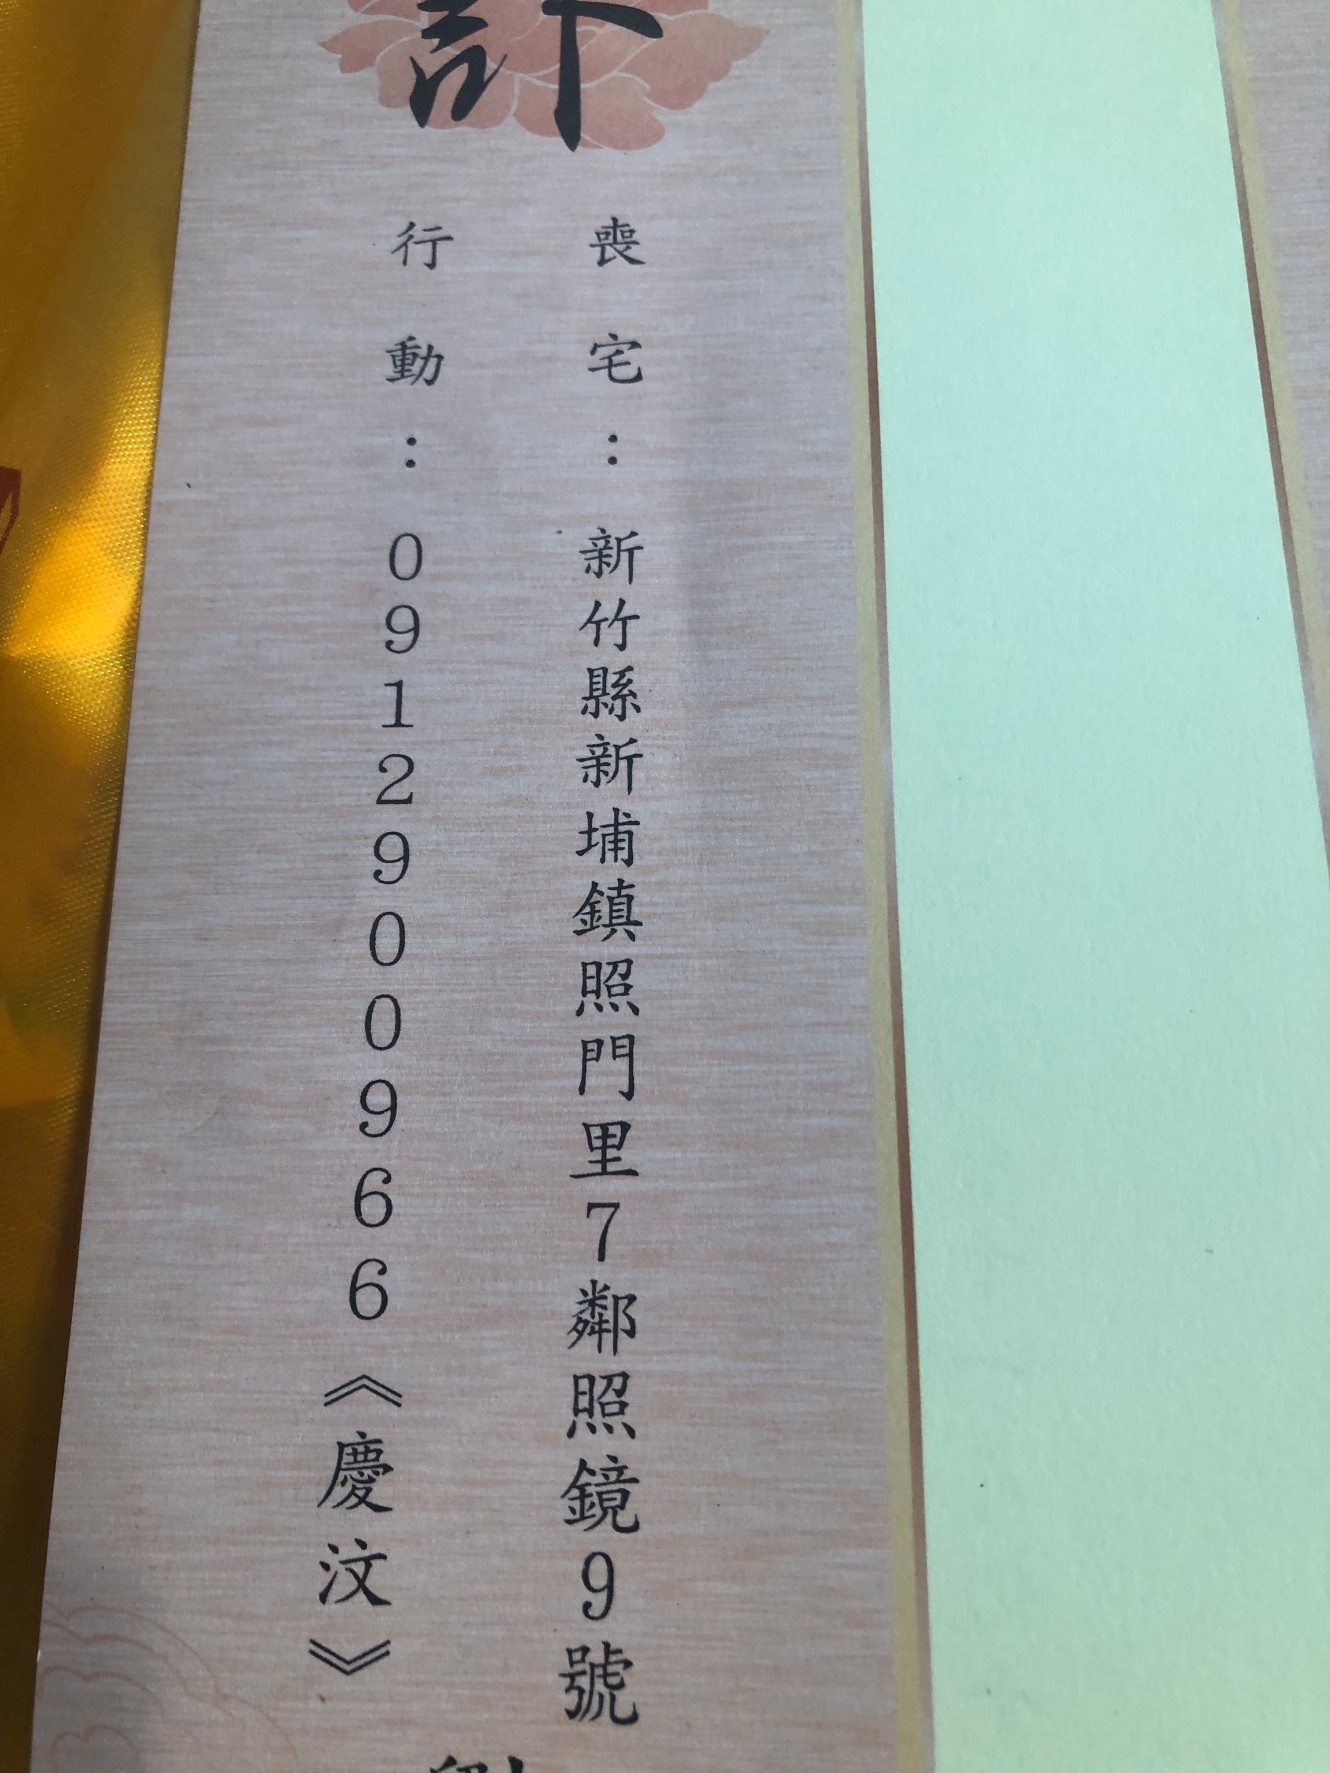 訃
喪宅：新竹縣新埔鎮照門里7鄰照鏡9號
行動：0912900966《慶汶》